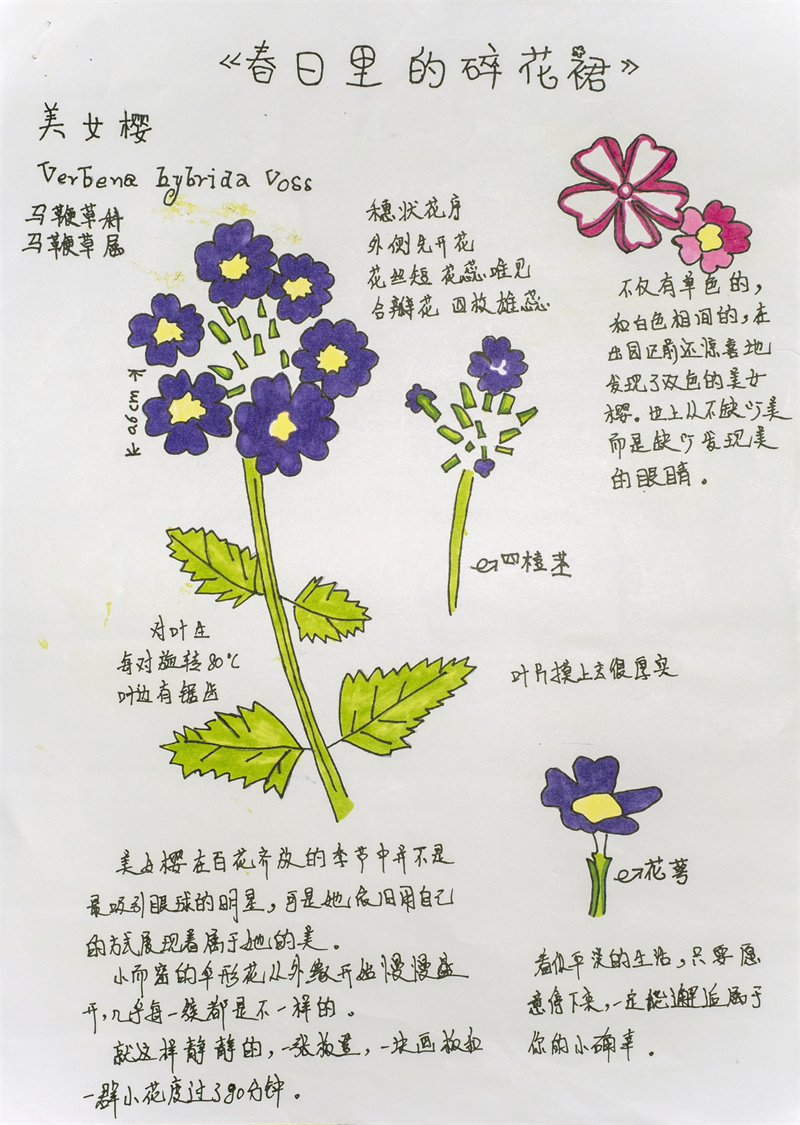 《春日里的碎花裙》
美女樱
Verbena hybrida Voss
马鞭草科
马鞭草属
穗状花序
外侧先开花
花丝短 花蕊难见
合瓣花 四枚雄蕊
不仅有单色的，
和白色相间的，在
出园区前还惊喜地
发现了双色的美女
樱。世上从不缺少美
而是缺少发现美
的眼睛。
0.6cm
四棱茎
对叶生
每对旋转80℃
叶边有锯齿
叶片摸上去很厚实
花萼
美女樱在百花齐放的季节中并不是
最吸引眼球的明星，可是她依旧用自己
的方式展现着属于她的美。
小而密的伞形花从外缘开始慢慢盛
开，几乎每一簇都是不一样的。
就这样静静的，一张板凳，一块画板和
一群小花度过了90分钟。
看似平淡的生活，只要愿
意停下来，一定能邂逅属于
你的小确幸。